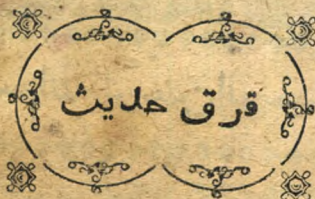 قرق حديث